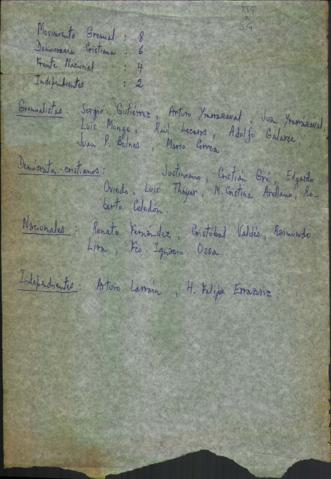 Movimiento Gremial : 8
Democracia Cristiana : 6
Frente Nacional : 4
Independientes : 2
Gremialistas: Sergio Gutiérrez Arturo Yrarrazaval, Juan Yrarrazaval,
Luis Monge, Raúl Lecaros, Adolfo
Juan P. Baines, Mario Correa
Democratas-cristianos: Justiniano, Cristián Gré, Edgardo
Oviedo, Luis Thayer, M. Cristina Arellano, Ro-
berto Celedón
Nacionales: Renato Fernández, Cristóbal Valdés, Raimundo
Lira, Fco Ignacio Ossa
Independientes: Arturo Larrain, H. Felipe Errazuriz